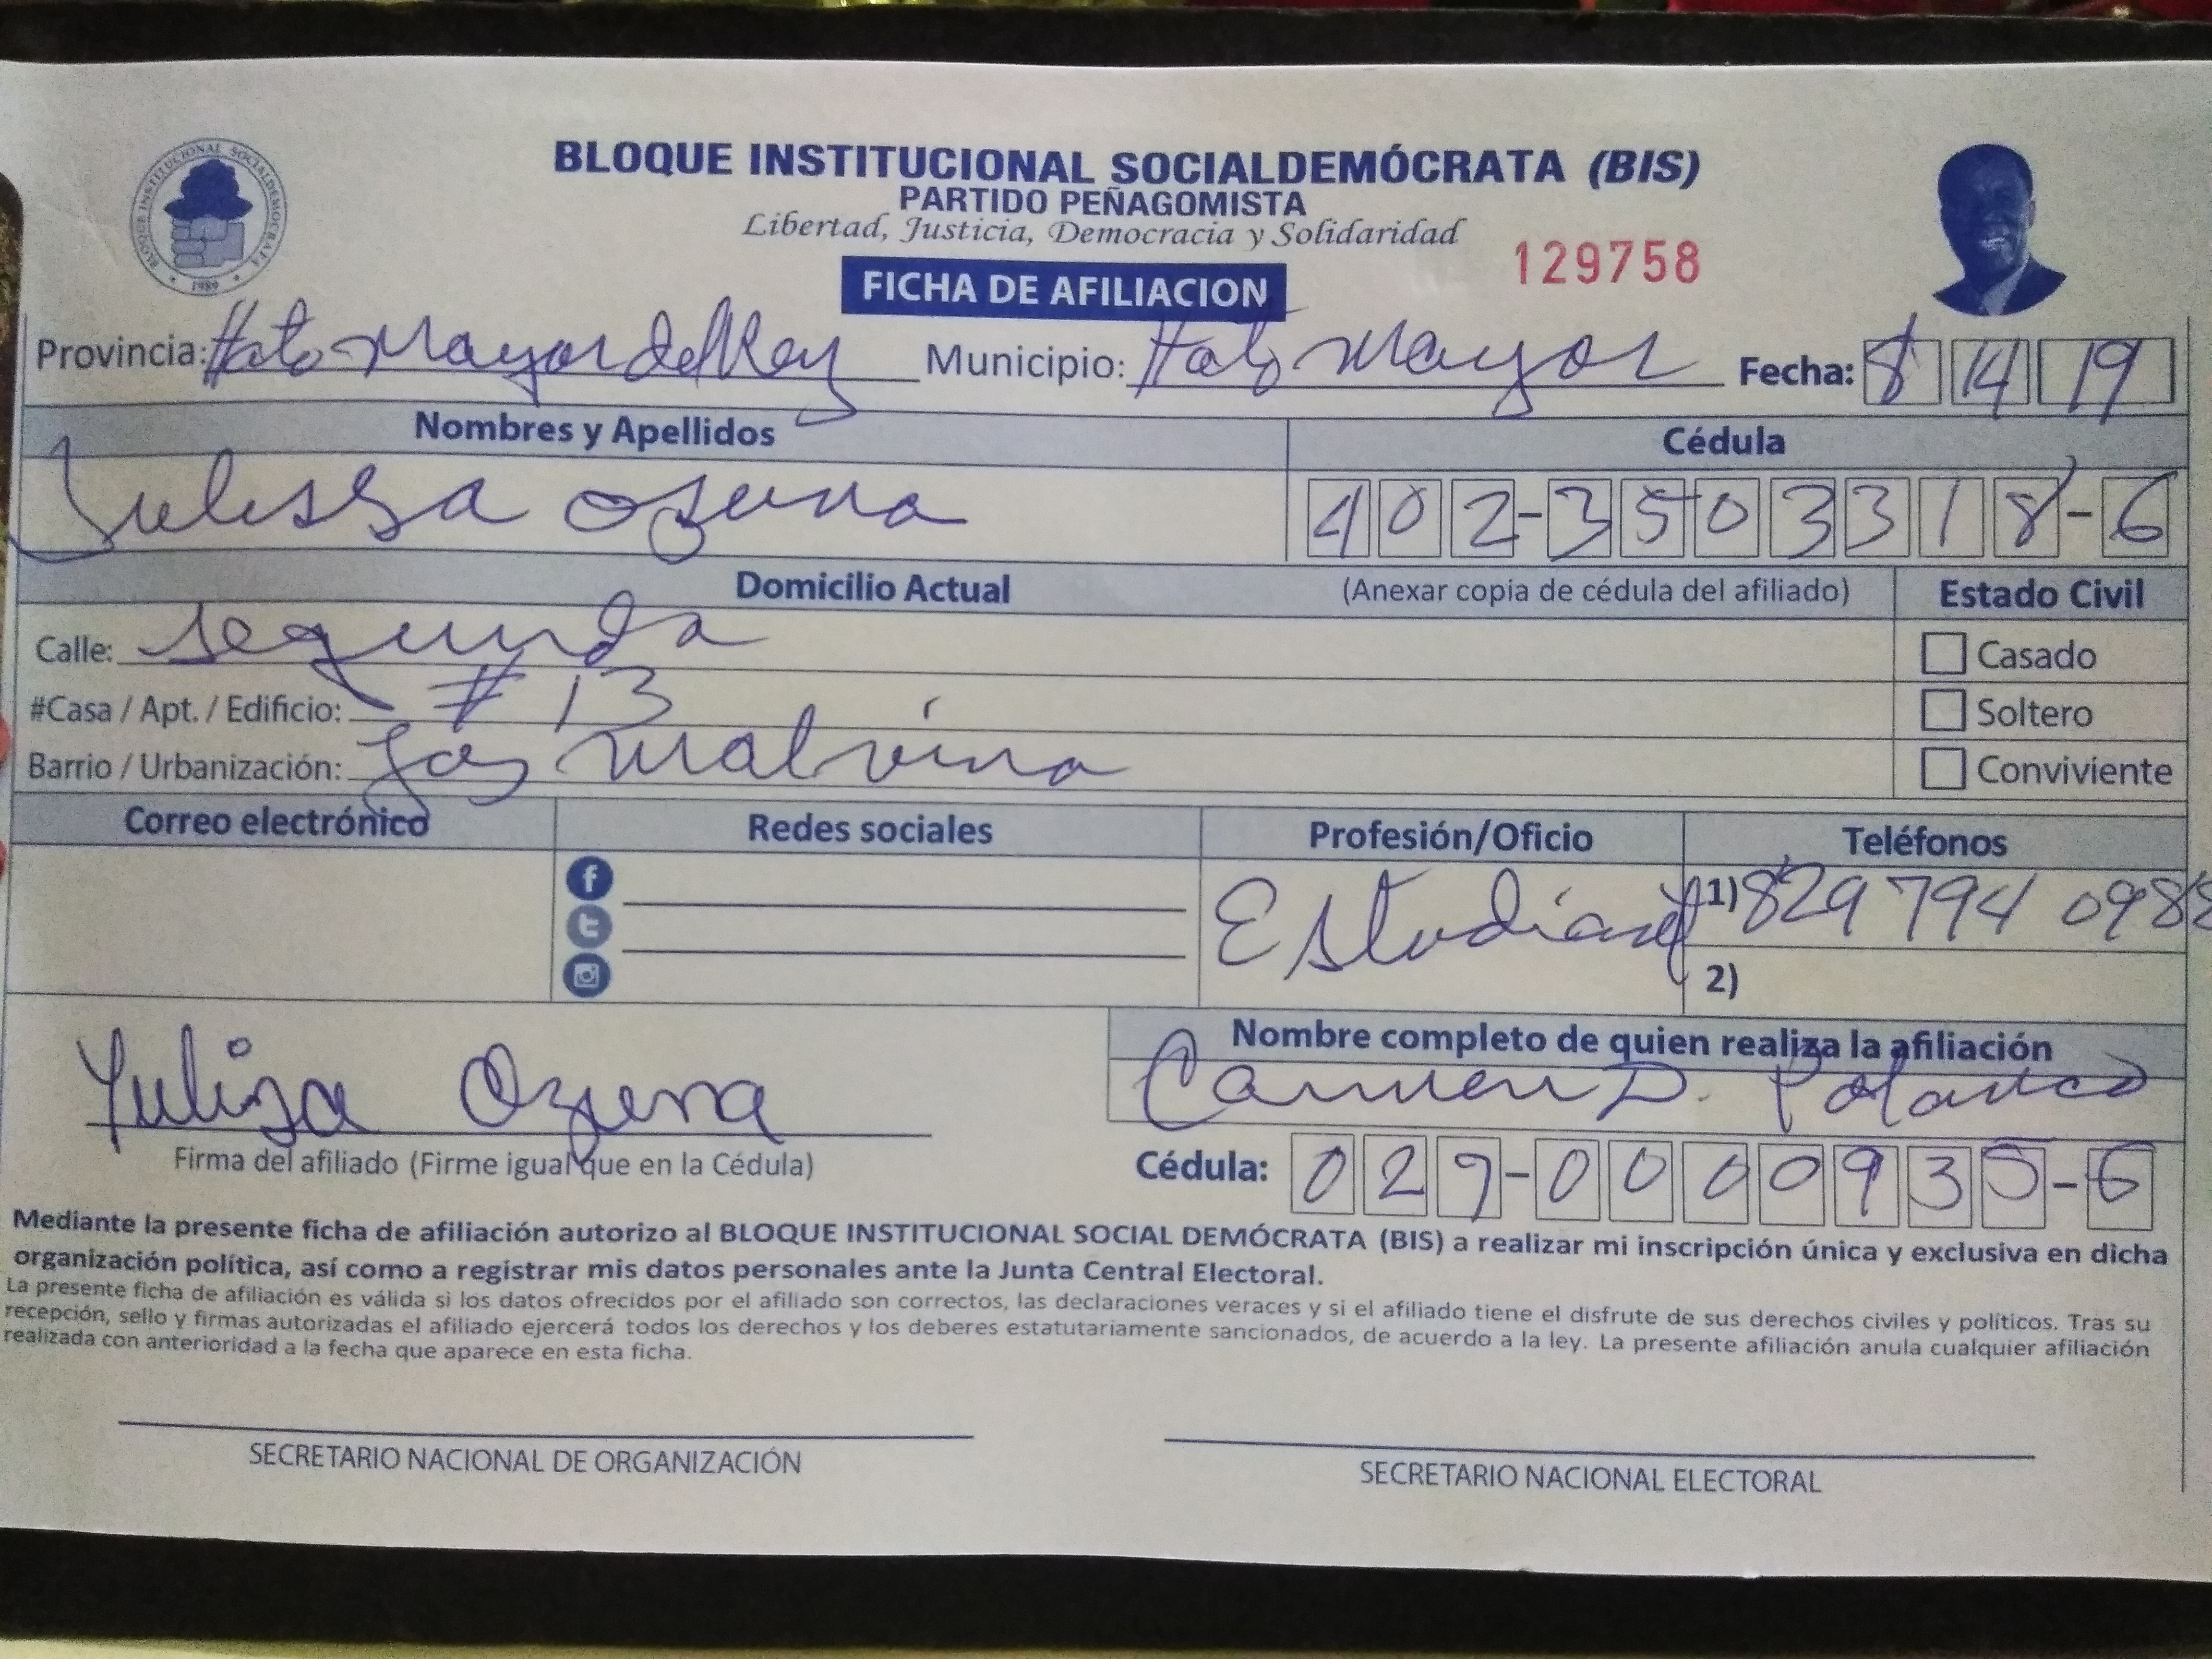 BLOQUE INSTITUCIONAL SOCIALDEMÓCRATA
1989
BLOQUE INSTITUCIONAL SOCIALDEMÓCRATA (BIS)
PARTIDO PEÑAGOMISTA
Libertad, Justicia, Democracia y Solidaridad
129758
FICHA DE AFILIACION
Provincia: Hato Mayor del Rey Municipio: Hato Mayor Fecha: 8 14 19
Nombres y Apellidos Cédula
Julissa Ozuna 402-3503318-6
Domicilio Actual (Anexar copia de cédula del afiliado) Estado Civil
Calle: Segunda Casado
#Casa / Apt. / Edificio: #13 Soltero
Barrio / Urbanización: Las Malvina Conviviente
Correo electrónico Redes sociales Profesión/Oficio Teléfonos
Estudiante 1) 829 794 0988
2)
Nombre completo de quien realiza la afiliación
Carmen D. Polanco
Yuliza Ozuna
Firma del afiliado (Firme igual que en la Cédula)
Cédula: 027-0000935-6
Mediante la presente ficha de afiliación autorizo al BLOQUE INSTITUCIONAL SOCIAL DEMÓCRATA (BIS) a realizar mi inscripción única y exclusiva en dicha
organización política, así como a registrar mis datos personales ante la Junta Central Electoral.
La presente ficha de afiliación es válida si los datos ofrecidos por el afiliado son correctos, las declaraciones veraces y si el afiliado tiene el disfrute de sus derechos civiles y políticos. Tras su
recepción, sello y firmas autorizadas el afiliado ejercerá todos los derechos y los deberes estatutariamente sancionados, de acuerdo a la ley. La presente afiliación anula cualquier afiliación
realizada con anterioridad a la fecha que aparece en esta ficha.
SECRETARIO NACIONAL DE ORGANIZACIÓN
SECRETARIO NACIONAL ELECTORAL